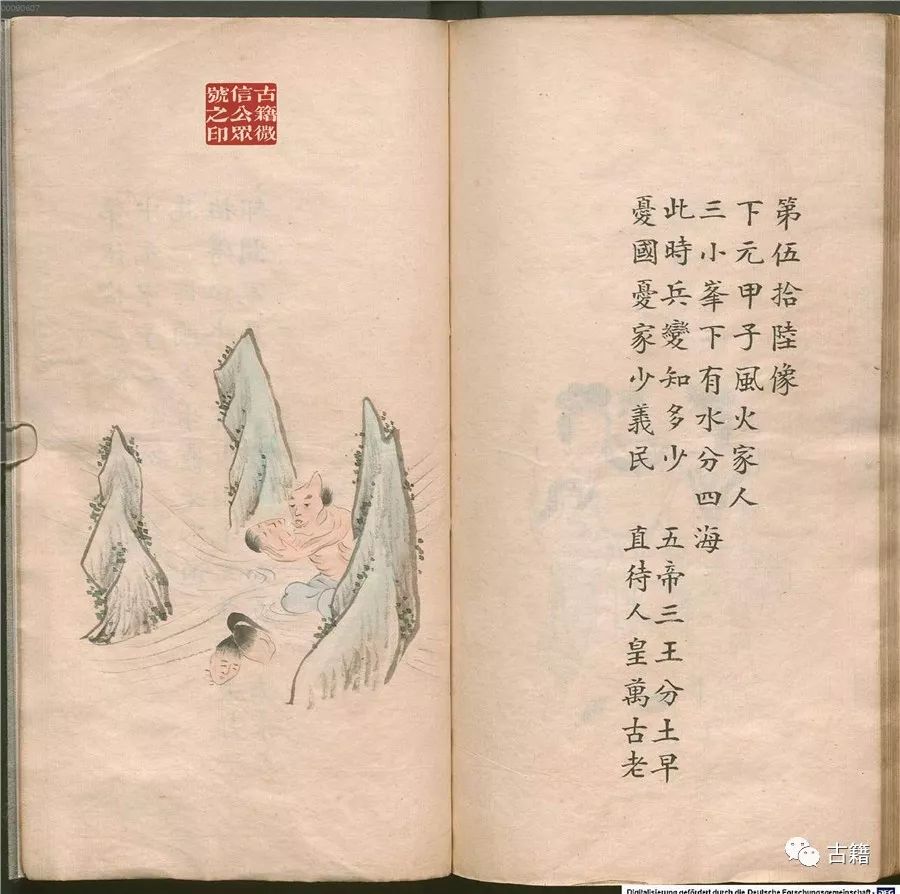 00090607
古籍微
信公眾
號之印
第伍拾陸像
下元甲子風火家人
三小峯下有水分四海
此時兵變知多少　五帝三王分土早
憂國憂家少義民　直待人皇萬古老
古籍
Digitalisierung gefördert durch die Deutsche Forschungsgemeinschaft - DFG